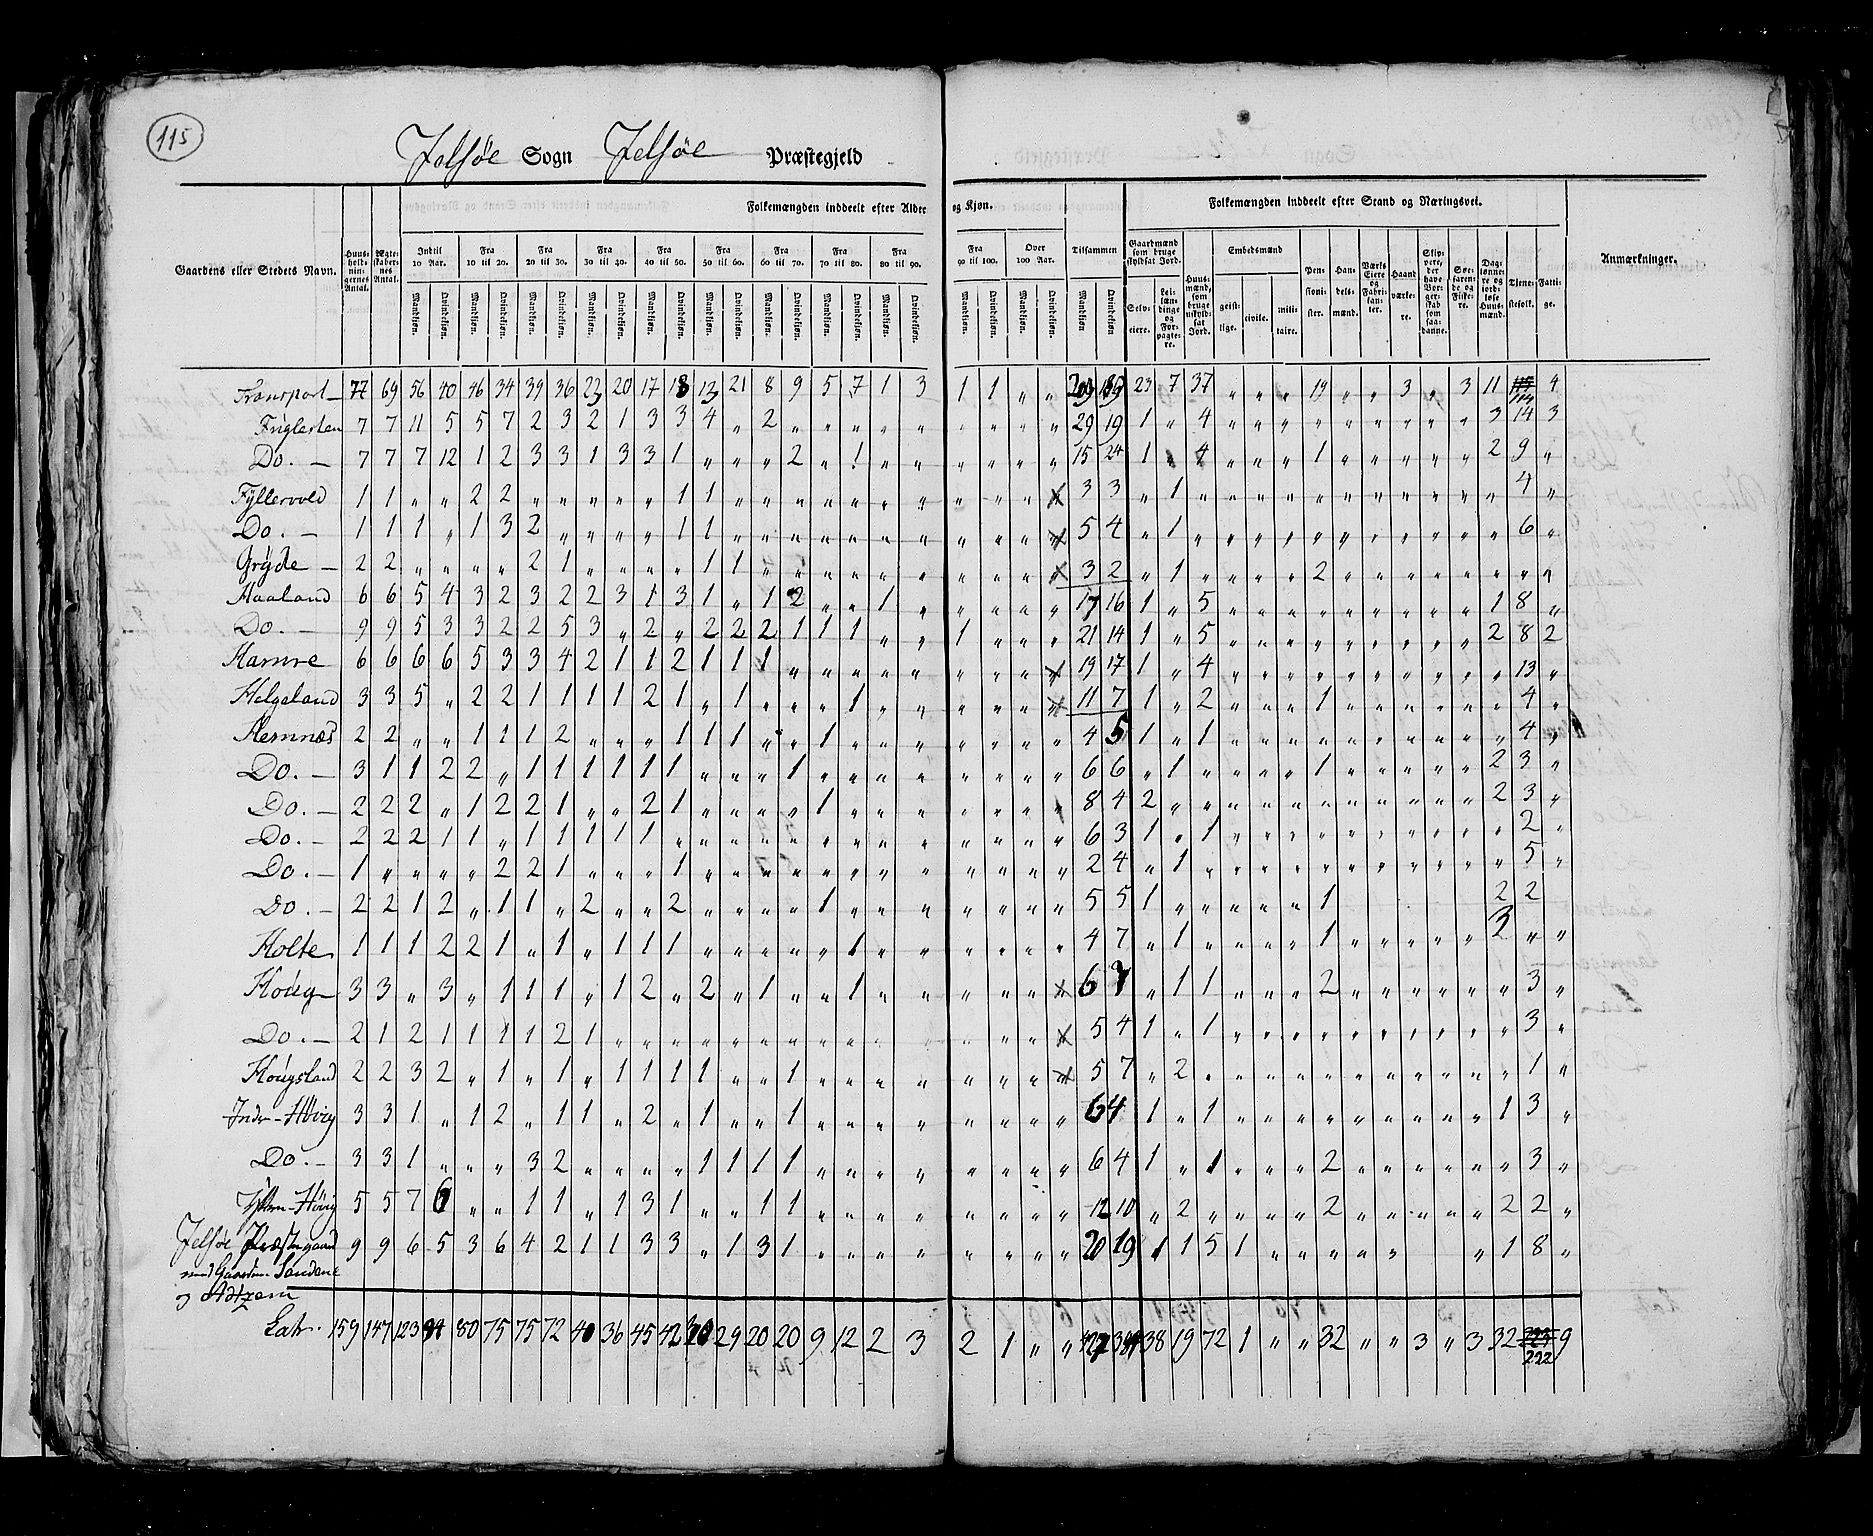 115
Jelsøe Sogn Jelsøe Præstegjeld
Folkemængden inddeelt efter Alder og Kjøn.
Folkemængden inddeelt efter Stand og Næringsvei.
Gaardens eller Stedets Navn. Huusholdningernes Antal. Ægteskabernes Antal. Indtil 10 Aar. Fra 10 til 20. Fra 20 til 30. Fra 30 til 40. Fra 40 til 50. Fra 50 til 60. Fra 60 til 70. Fra 70 til 80. Fra 80 til 90. Fra 90 til 100. Over 100 Aar. Tilsammen Gaardmænd som bruge skyldsat Jord. Huusmænd, som bruge uskyldsat Jord. Embedsmænd Pensionister. Handelsmænd. Værks Eiere og Fabrikanter. Haandværkere. Søefarende og Fiskere. Tjenestefolk. Fattige. Anmærkninger.
Mandkjøn. Qvindekjøn. Selveiere. Leilændinge og Forpagtere. geistlige. civile. militaire.
Transport 77 69 56 40 46 34 39 36 23 20 17 18 13 21 8 9 5 7 1 3 1 1 „ „ 23 7 37 „ „ „ 19 „ „ 3 „ 3 11 114 4
Friglesten 7 7 11 5 5 7 2 3 2 1 3 3 4 „ 2 „ „ „ „ „ „ „ „ „ 29 19 1 „ 4 „ „ „ „ „ „ „ „ „ 3 14 3
Do. 7 7 7 12 1 2 3 3 1 3 3 1 „ „ „ 2 „ 1 „ „ „ „ „ „ 15 24 1 „ 4 „ „ „ 1 „ „ „ „ „ 2 9 „
Fyllervold 1 1 „ „ 2 2 „ „ „ „ „ 1 1 „ „ „ „ „ „ „ „ „ „ „ 3 3 „ 1 „ „ „ „ „ „ „ „ „ „ „ 4 „
Do. 1 1 1 „ 1 3 2 „ „ „ „ 1 1 „ „ „ „ „ „ „ „ „ „ „ 5 4 „ 1 „ „ „ „ „ „ „ „ „ „ „ 6 „
Grýde 2 2 „ „ „ „ 2 1 „ „ „ „ 1 1 „ „ „ „ „ „ „ „ „ „ 3 2 „ 1 „ „ „ „ 2 „ „ „ „ „ „ „ „
Haaland 6 6 5 4 3 2 3 2 2 3 1 3 1 „ 1 2 „ „ 1 „ „ „ „ „ 17 16 1 „ 5 „ „ „ „ „ „ „ „ „ 1 8 „
Do. 9 9 5 3 3 2 2 5 3 „ 2 „ 2 2 2 1 1 1 „ „ 1 „ „ „ 21 14 1 „ 5 „ „ „ „ „ „ „ „ „ 2 8 2
Hamre 6 6 6 6 5 3 3 4 2 1 1 2 1 1 1 „ „ „ „ „ „ „ „ „ 19 17 1 „ 4 „ „ „ „ „ „ „ „ „ „ 13 „
Helgeland 3 3 5 „ 2 2 1 1 1 1 2 1 „ 1 „ „ „ 1 „ „ „ „ „ „ 11 7 1 „ 2 „ „ „ 1 „ „ „ „ „ „ 4 „
Hemnæs 2 2 „ „ 1 1 1 2 „ „ „ 1 1 1 „ „ 1 „ „ „ „ „ „ „ 4 5 1 „ 1 „ „ „ „ „ „ „ „ „ „ 4 „
Do. 3 1 1 2 2 „ 1 1 1 1 1 1 „ „ „ 1 „ „ „ „ „ „ „ „ 6 6 „ 1 „ „ „ „ 1 „ „ „ „ „ 2 3 „
Do. 2 2 2 „ 1 2 2 1 „ „ 2 1 „ „ „ „ 1 „ „ „ „ „ „ „ 8 4 2 „ „ „ „ „ „ „ „ „ „ „ 2 3 „
Do. 2 2 2 1 1 „ 1 1 1 1 1 „ „ „ „ „ „ „ „ „ „ „ „ „ 6 3 1 „ 1 „ „ „ „ „ „ „ „ „ „ 2 „
Do. 1 „ „ „ „ 2 2 1 „ „ „ 1 „ „ „ „ „ „ „ „ „ „ „ „ 2 4 „ 1 „ „ „ „ „ „ „ „ „ „ „ 5 „
Do. 2 2 1 2 „ 1 1 „ 2 „ „ 2 „ „ „ „ 1 „ „ „ „ „ „ „ 5 5 1 „ „ „ „ „ 1 2 2
Holte 1 1 1 2 2 1 „ 1 „ 1 1 1 „ „ „ „ „ 1 „ „ „ „ „ „ 4 7 „ 1 „ „ „ „ 1 „ „ „ „ „ „ „
Houg 3 3 „ 3 „ 1 1 1 „ 1 2 „ 2 „ 1 „ „ 1 „ „ „ „ „ „ 6 7 „ 1 1 „ „ „ 2 „ „ „ „ „ „ 3 „
Do. 2 1 2 1 1 1 1 2 1 „ „ „ „ „ „ „ „ „ „ „ „ „ „ „ 5 4 1 „ 1 „ „ „ „ „ „ „ „ „ „ 3 „
Hougsland 2 2 3 2 „ 1 „ 1 „ 1 1 1 1 „ „ 1 „ „ „ „ „ „ „ „ 5 7 „ 2 „ „ „ „ „ „ „ „ „ „ „ 1 „
Indre-Høvig 3 3 1 „ 1 2 „ 1 1 „ 2 „ 1 „ „ 1 „ „ „ „ „ „ „ „ 6 4 1 „ 1 „ „ „ „ „ „ „ „ „ 1 3 „
Do. 3 3 1 „ „ „ 3 2 „ „ „ „ 1 1 1 1 „ „ „ „ „ „ „ „ 6 4 1 „ 1 „ „ „ 2 „ „ „ „ „ „ 3 „
Høvig 5 5 7 6 „ „ 1 1 „ 1 3 1 „ „ 1 1 „ „ „ „ „ „ „ „ 12 10 „ 2 „ „ „ „ 2 „ „ „ „ „ 2 2 „
Jelsøe Præstegaard 9 9 6 5 3 6 4 2 1 1 3 3 „ 1 3 1 „ „ „ „ „ „ „ „ 20 19 1 1 5 1 „ „ „ „ „ „ „ 1 8 „
med Gaarden Sandene
og
Lat. 159 147 123 94 80 75 75 72 40 36 45 42 30 29 20 20 9 12 2 3 2 1 „ „ 427 384 38 19 72 1 „ „ 32 „ „ 3 „ 3 32 222 9